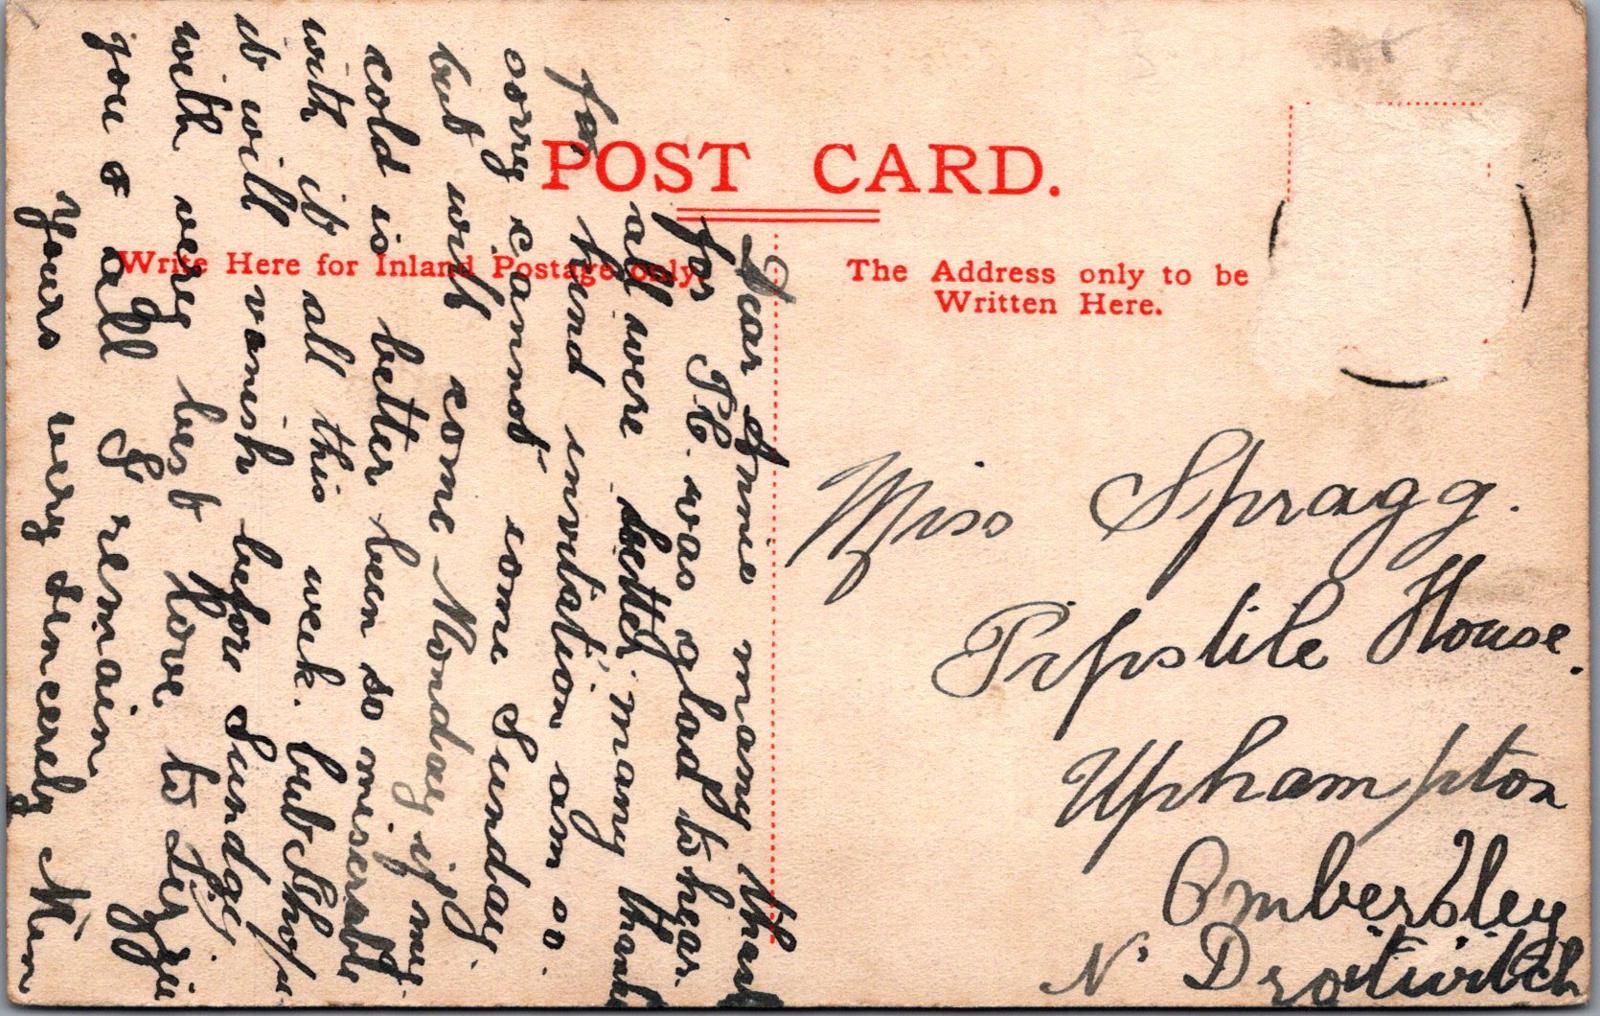 POST CARD.
Write Here for Inland Postage only.
The Address only to be
Written Here.
Dear Annie many thanks
for PC. was glad to hear
all were better, many thanks
for kind invitation am so
sorry cannot come Sunday.
but will come Monday if my
cold is better been so miserable
with it all this week. but I hope
it will vanish before Sunday
with very best love to Lizzie
you & all I remain
Yours very sincerely
Miss Spragg.
Tipstile House.
Uphampton
Ombersley
Nr Droitwitch